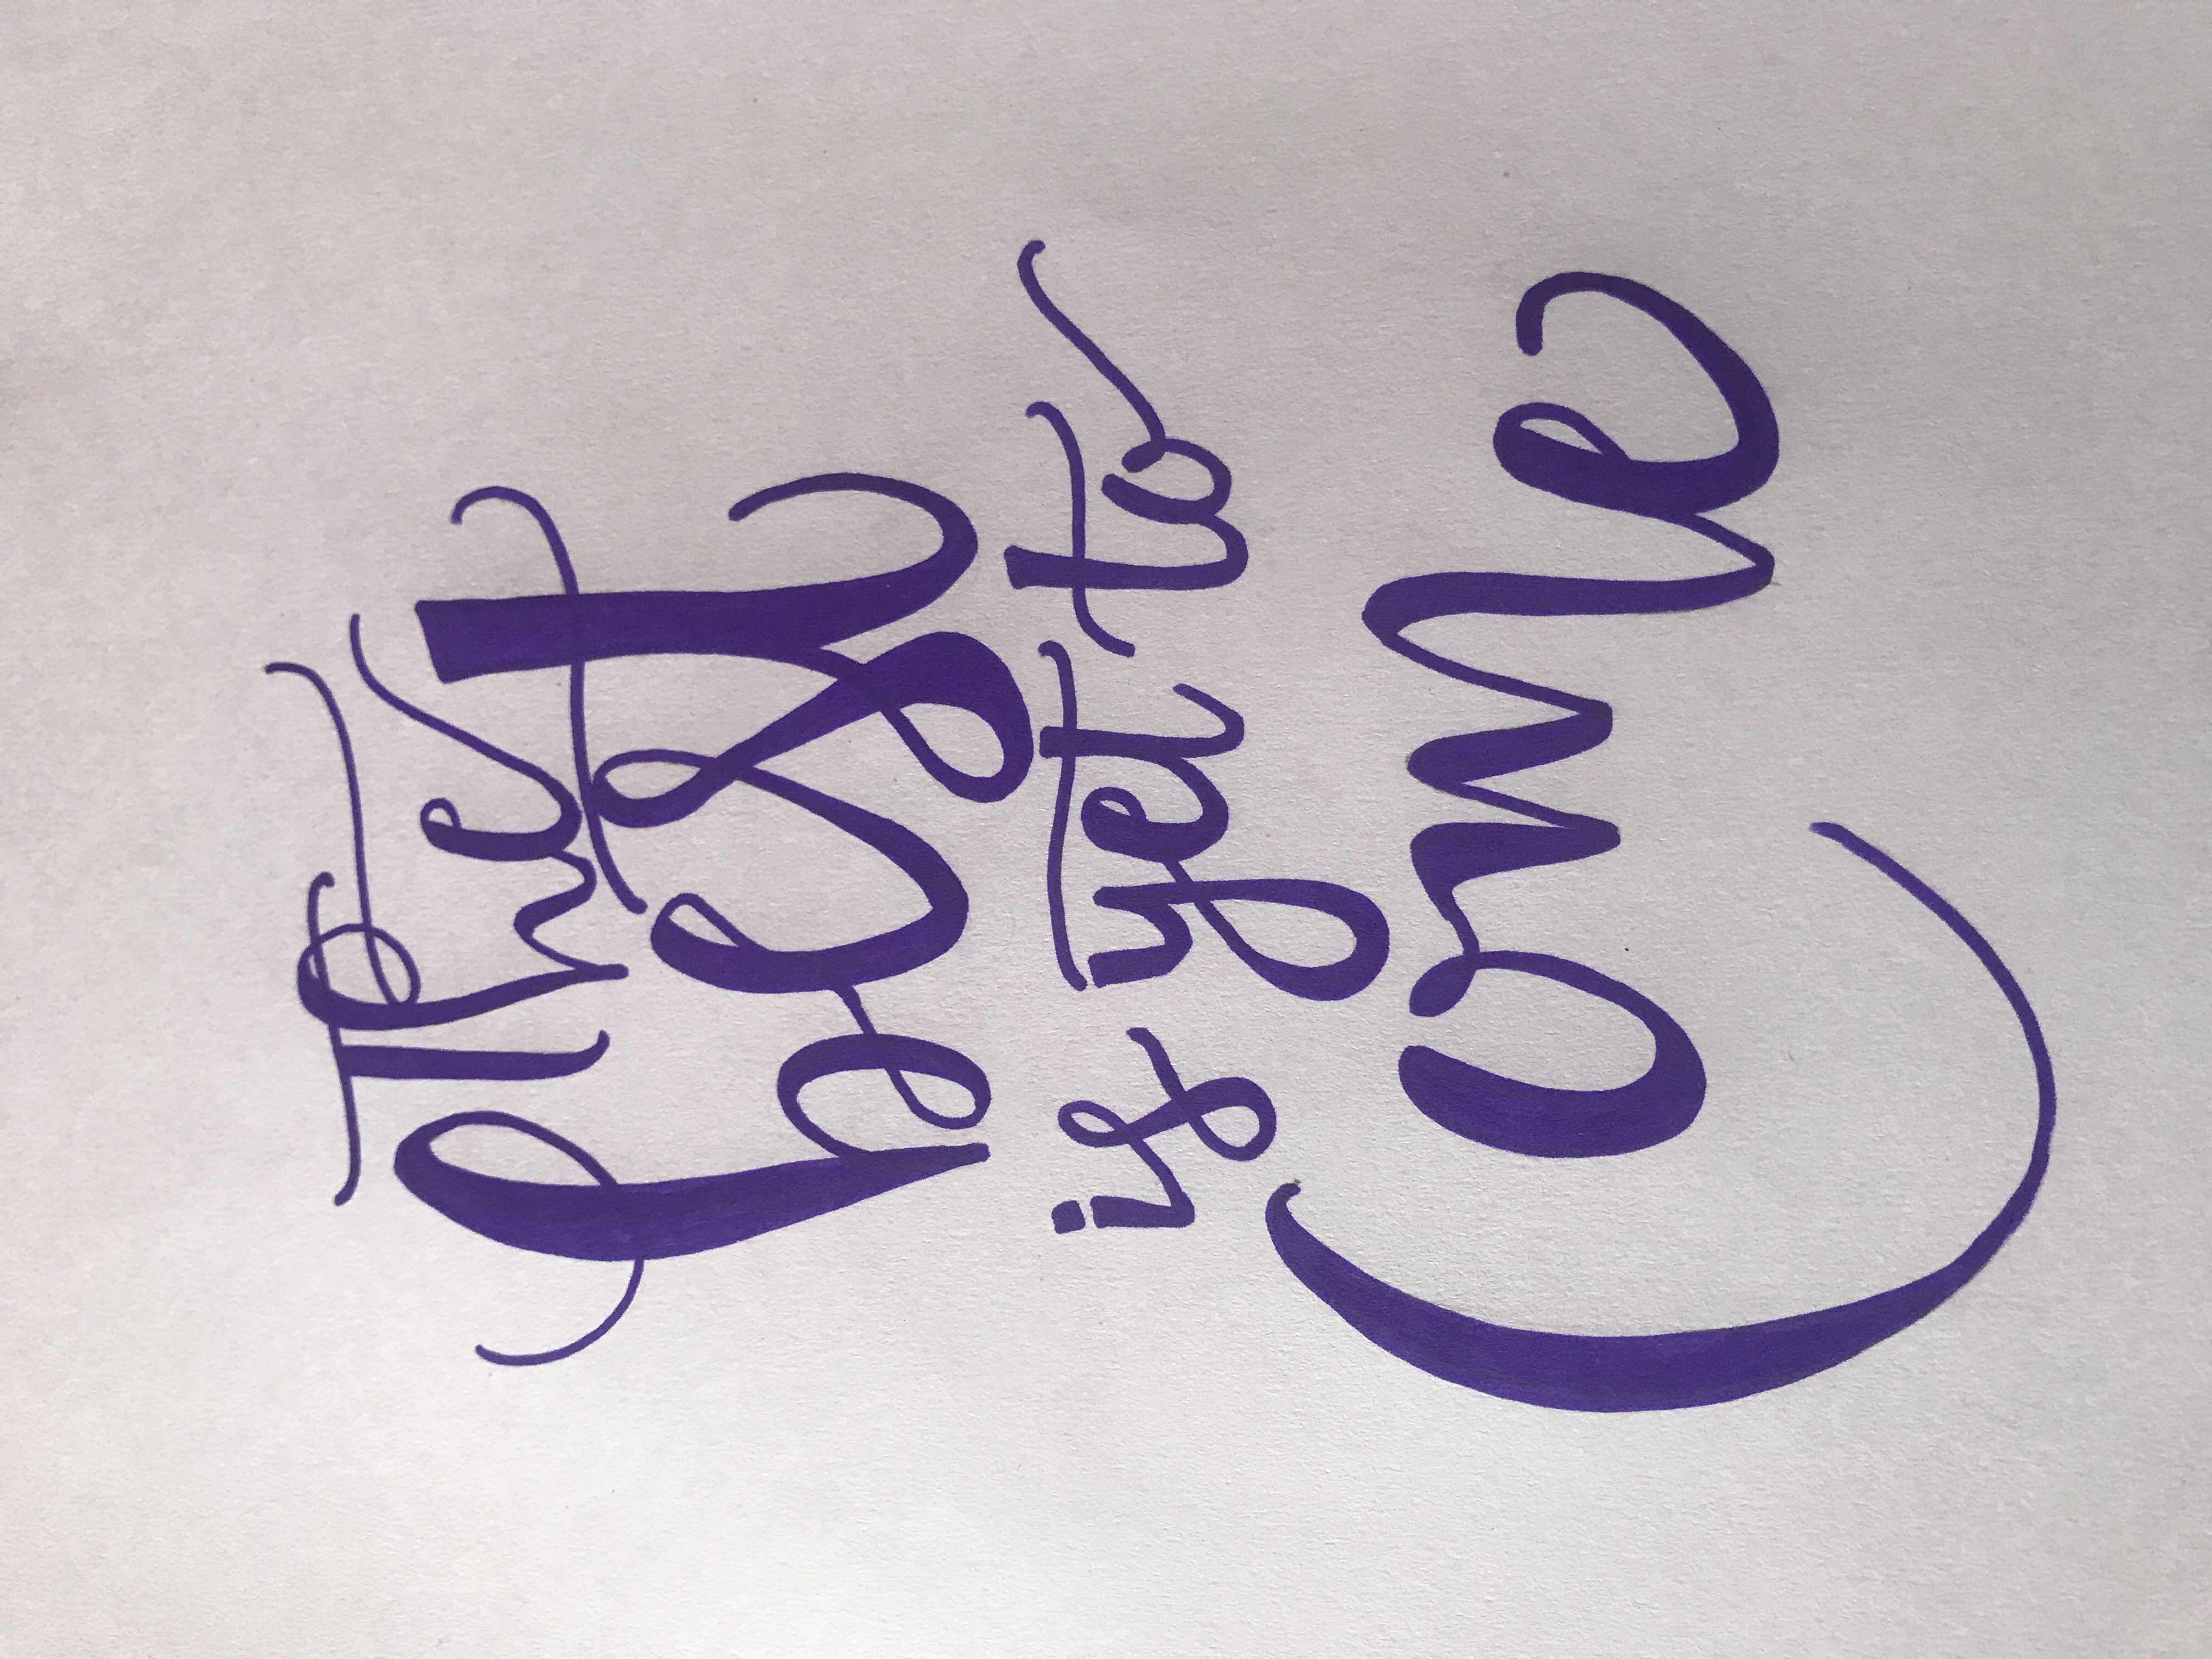 The
best
is yet to
Come